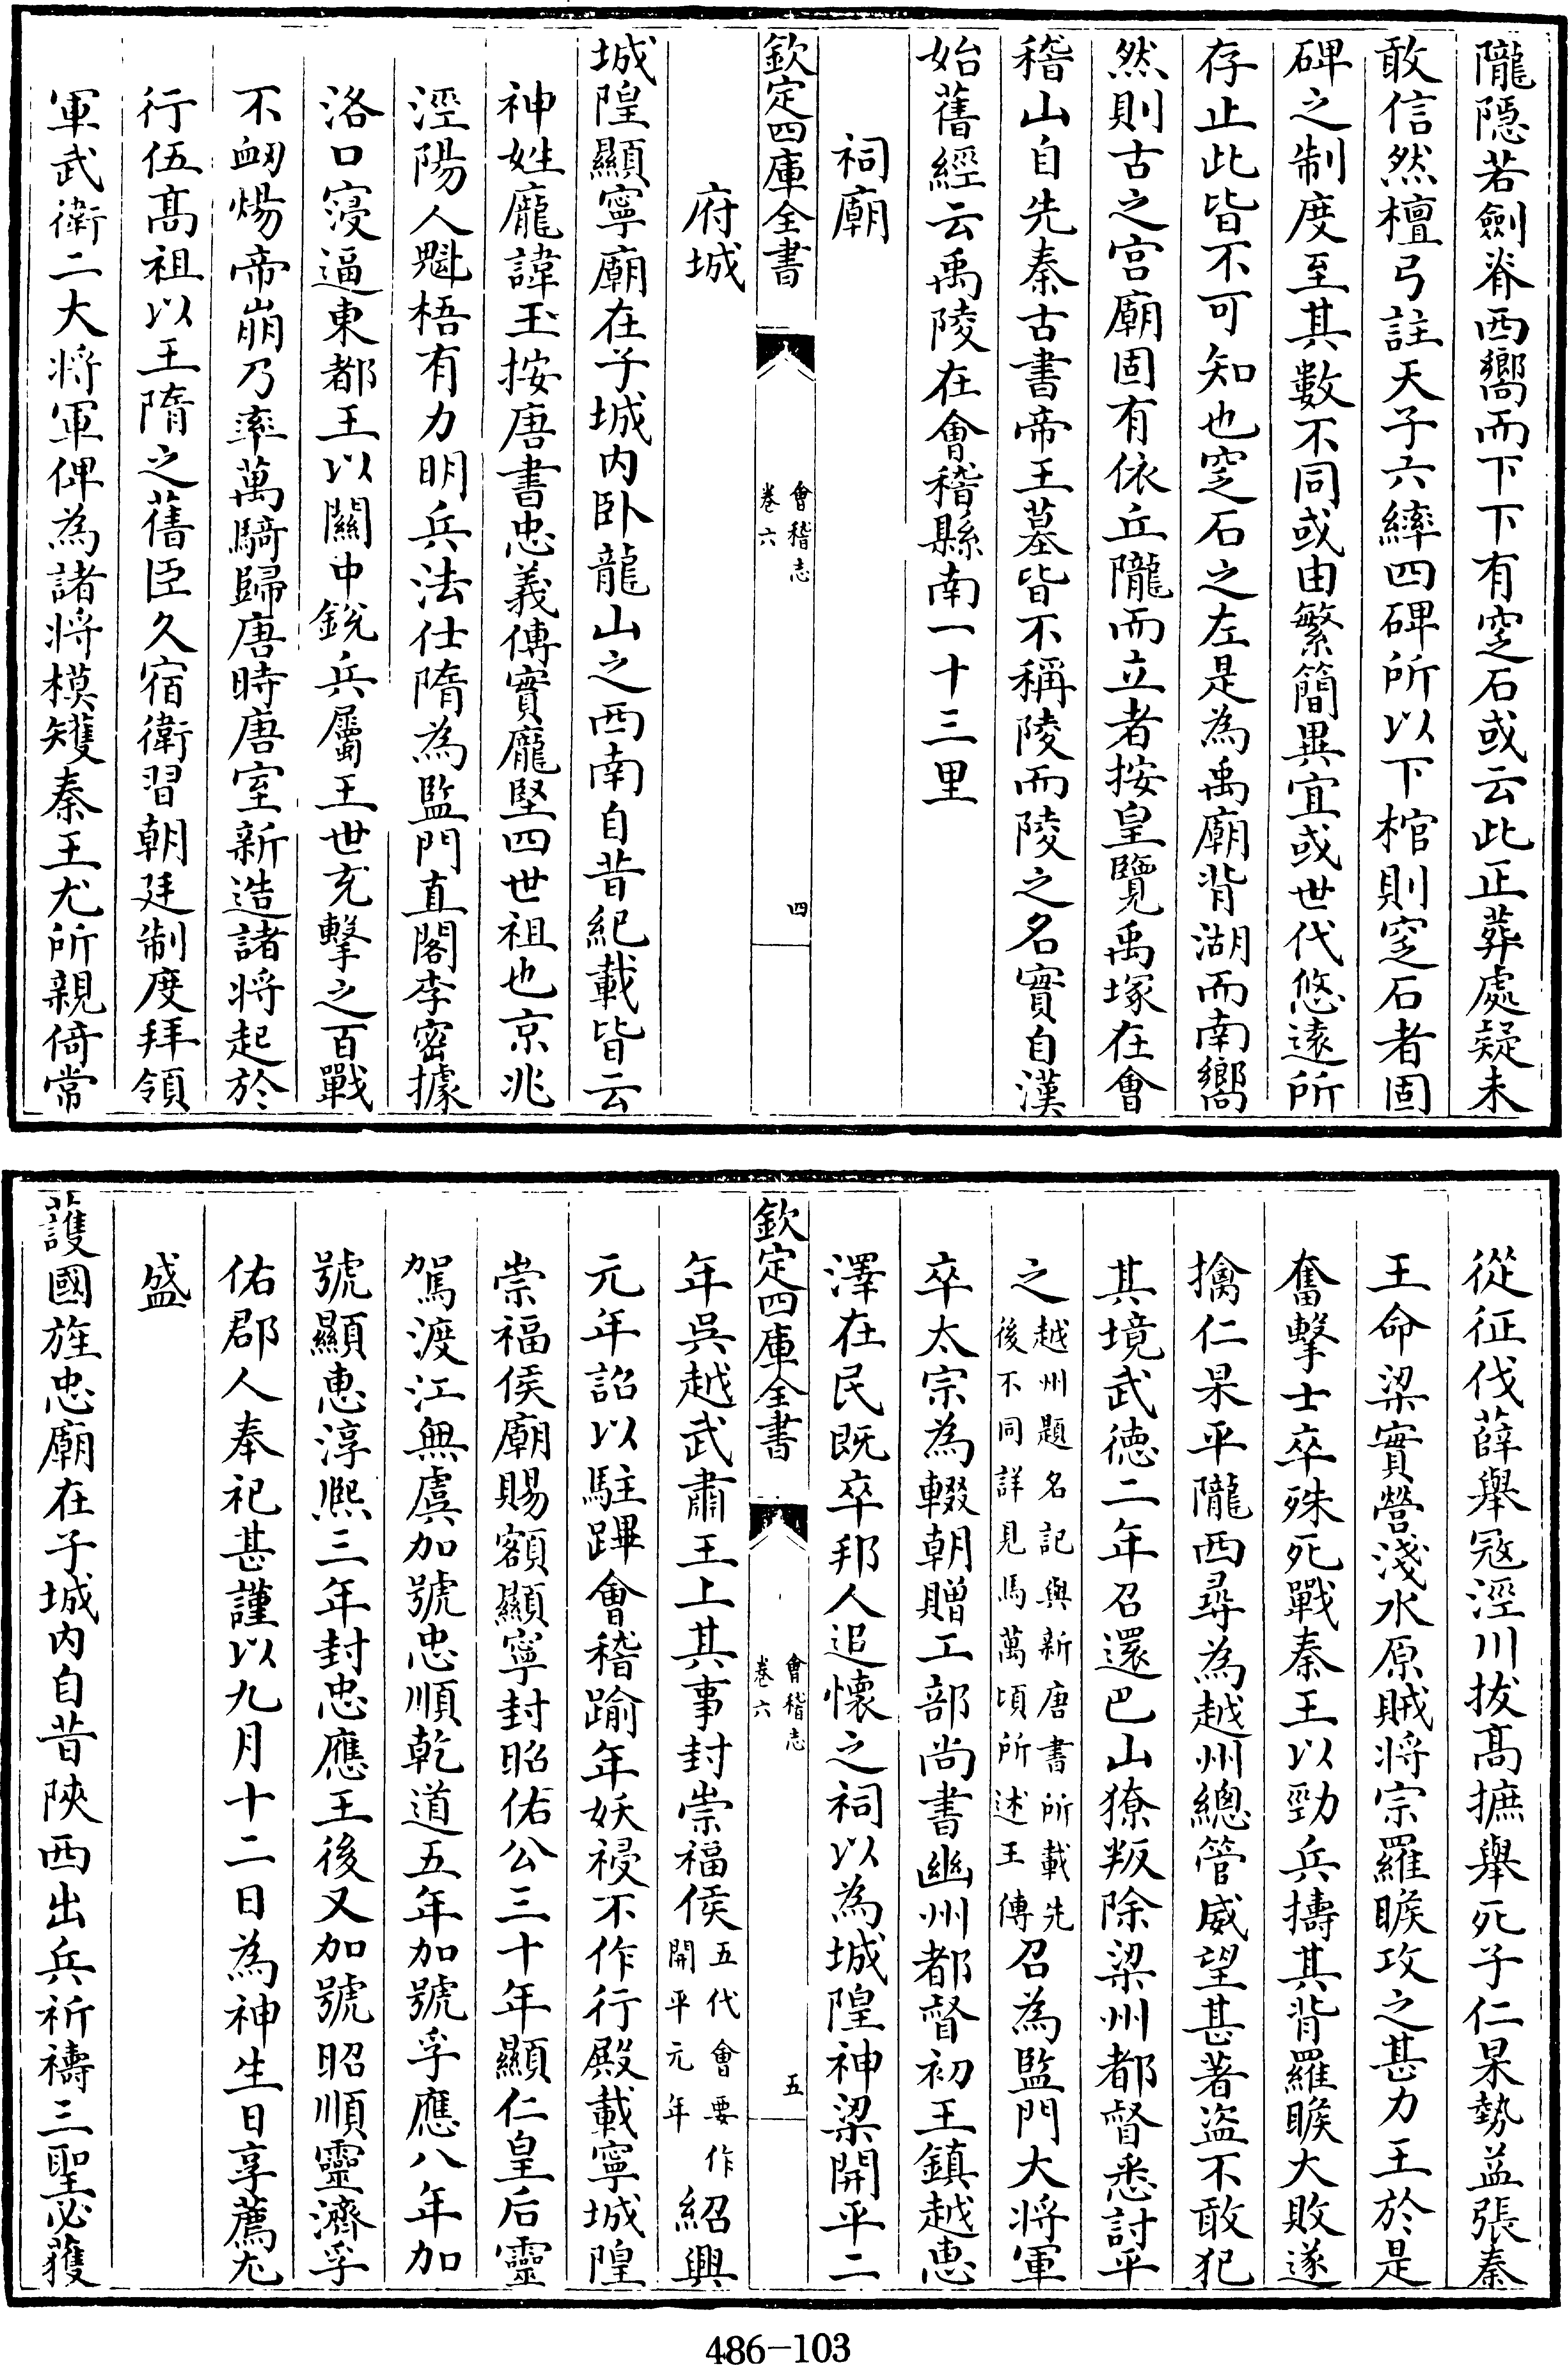 隴隠若劍脊西嚮而下下有窆石或云此正葬處疑未
敢信然檀弓註天子六繂四碑所以下棺則窆石者固
碑之制度至其數不同或由繁簡異宜或世代悠遠所
存止此皆不可知也窆石之左是為禹廟背湖而南嚮
然則古之宫廟固有依丘隴而立者按皇覽禹塚在會
稽山自先秦古書帝王墓皆不稱陵而陵之名實自漢
始舊經云禹陵在會稽縣南一十三里
祠廟
欽定四庫全書
會稽志
卷六
四
府城
城隍顯寧廟在子城内卧龍山之西南自昔紀載皆云
神姓龐諱玉按唐書忠義傳實龐堅四世祖也京兆
涇陽人魁梧有力明兵法仕隋為監門直閣李密據
洛口寖逼東都王以關中銳兵屬王世充擊之百戰
不衂煬帝崩乃率萬騎歸唐時唐室新造諸将起於
行伍髙祖以王隋之舊臣久宿衛習朝廷制度拜領
軍武衛二大将軍俾為諸将模矱秦王尤所親倚常
從征伐薛舉冦涇川拔髙摭舉死子仁杲勢益張秦
王命梁實營淺水原賊将宗羅睺攻之甚力王於是
奮擊士卒殊死戰秦王以勁兵擣其背羅睺大敗遂
擒仁杲平隴西尋為越州總管威望甚著盗不敢犯
其境武徳二年召還巴山獠叛除梁州都督悉討平
之越州題名記與新唐書所載先後不同詳見馬萬頃所述王傳召為監門大将軍
卒太宗為輟朝贈工部尚書幽州都督初王鎮越惠
澤在民既卒邦人追懷之祠以為城隍神梁開平二
欽定四庫全書
會稽志
卷六
五
年吳越武肅王上其事封崇福侯五代會要作開平元年紹興
元年詔以駐蹕會稽踰年妖祲不作行殿載寧城隍
崇福侯廟賜額顯寧封昭佑公三十年顯仁皇后靈
駕渡江無虞加號忠順乾道五年加號孚應八年加
號顯惠淳熈三年封忠應王後又加號昭順靈濟孚
佑郡人奉祀甚謹以九月十二日為神生日享薦尤
盛
護國旌忠廟在子城内自昔陜西出兵祈禱三聖必獲
486-103